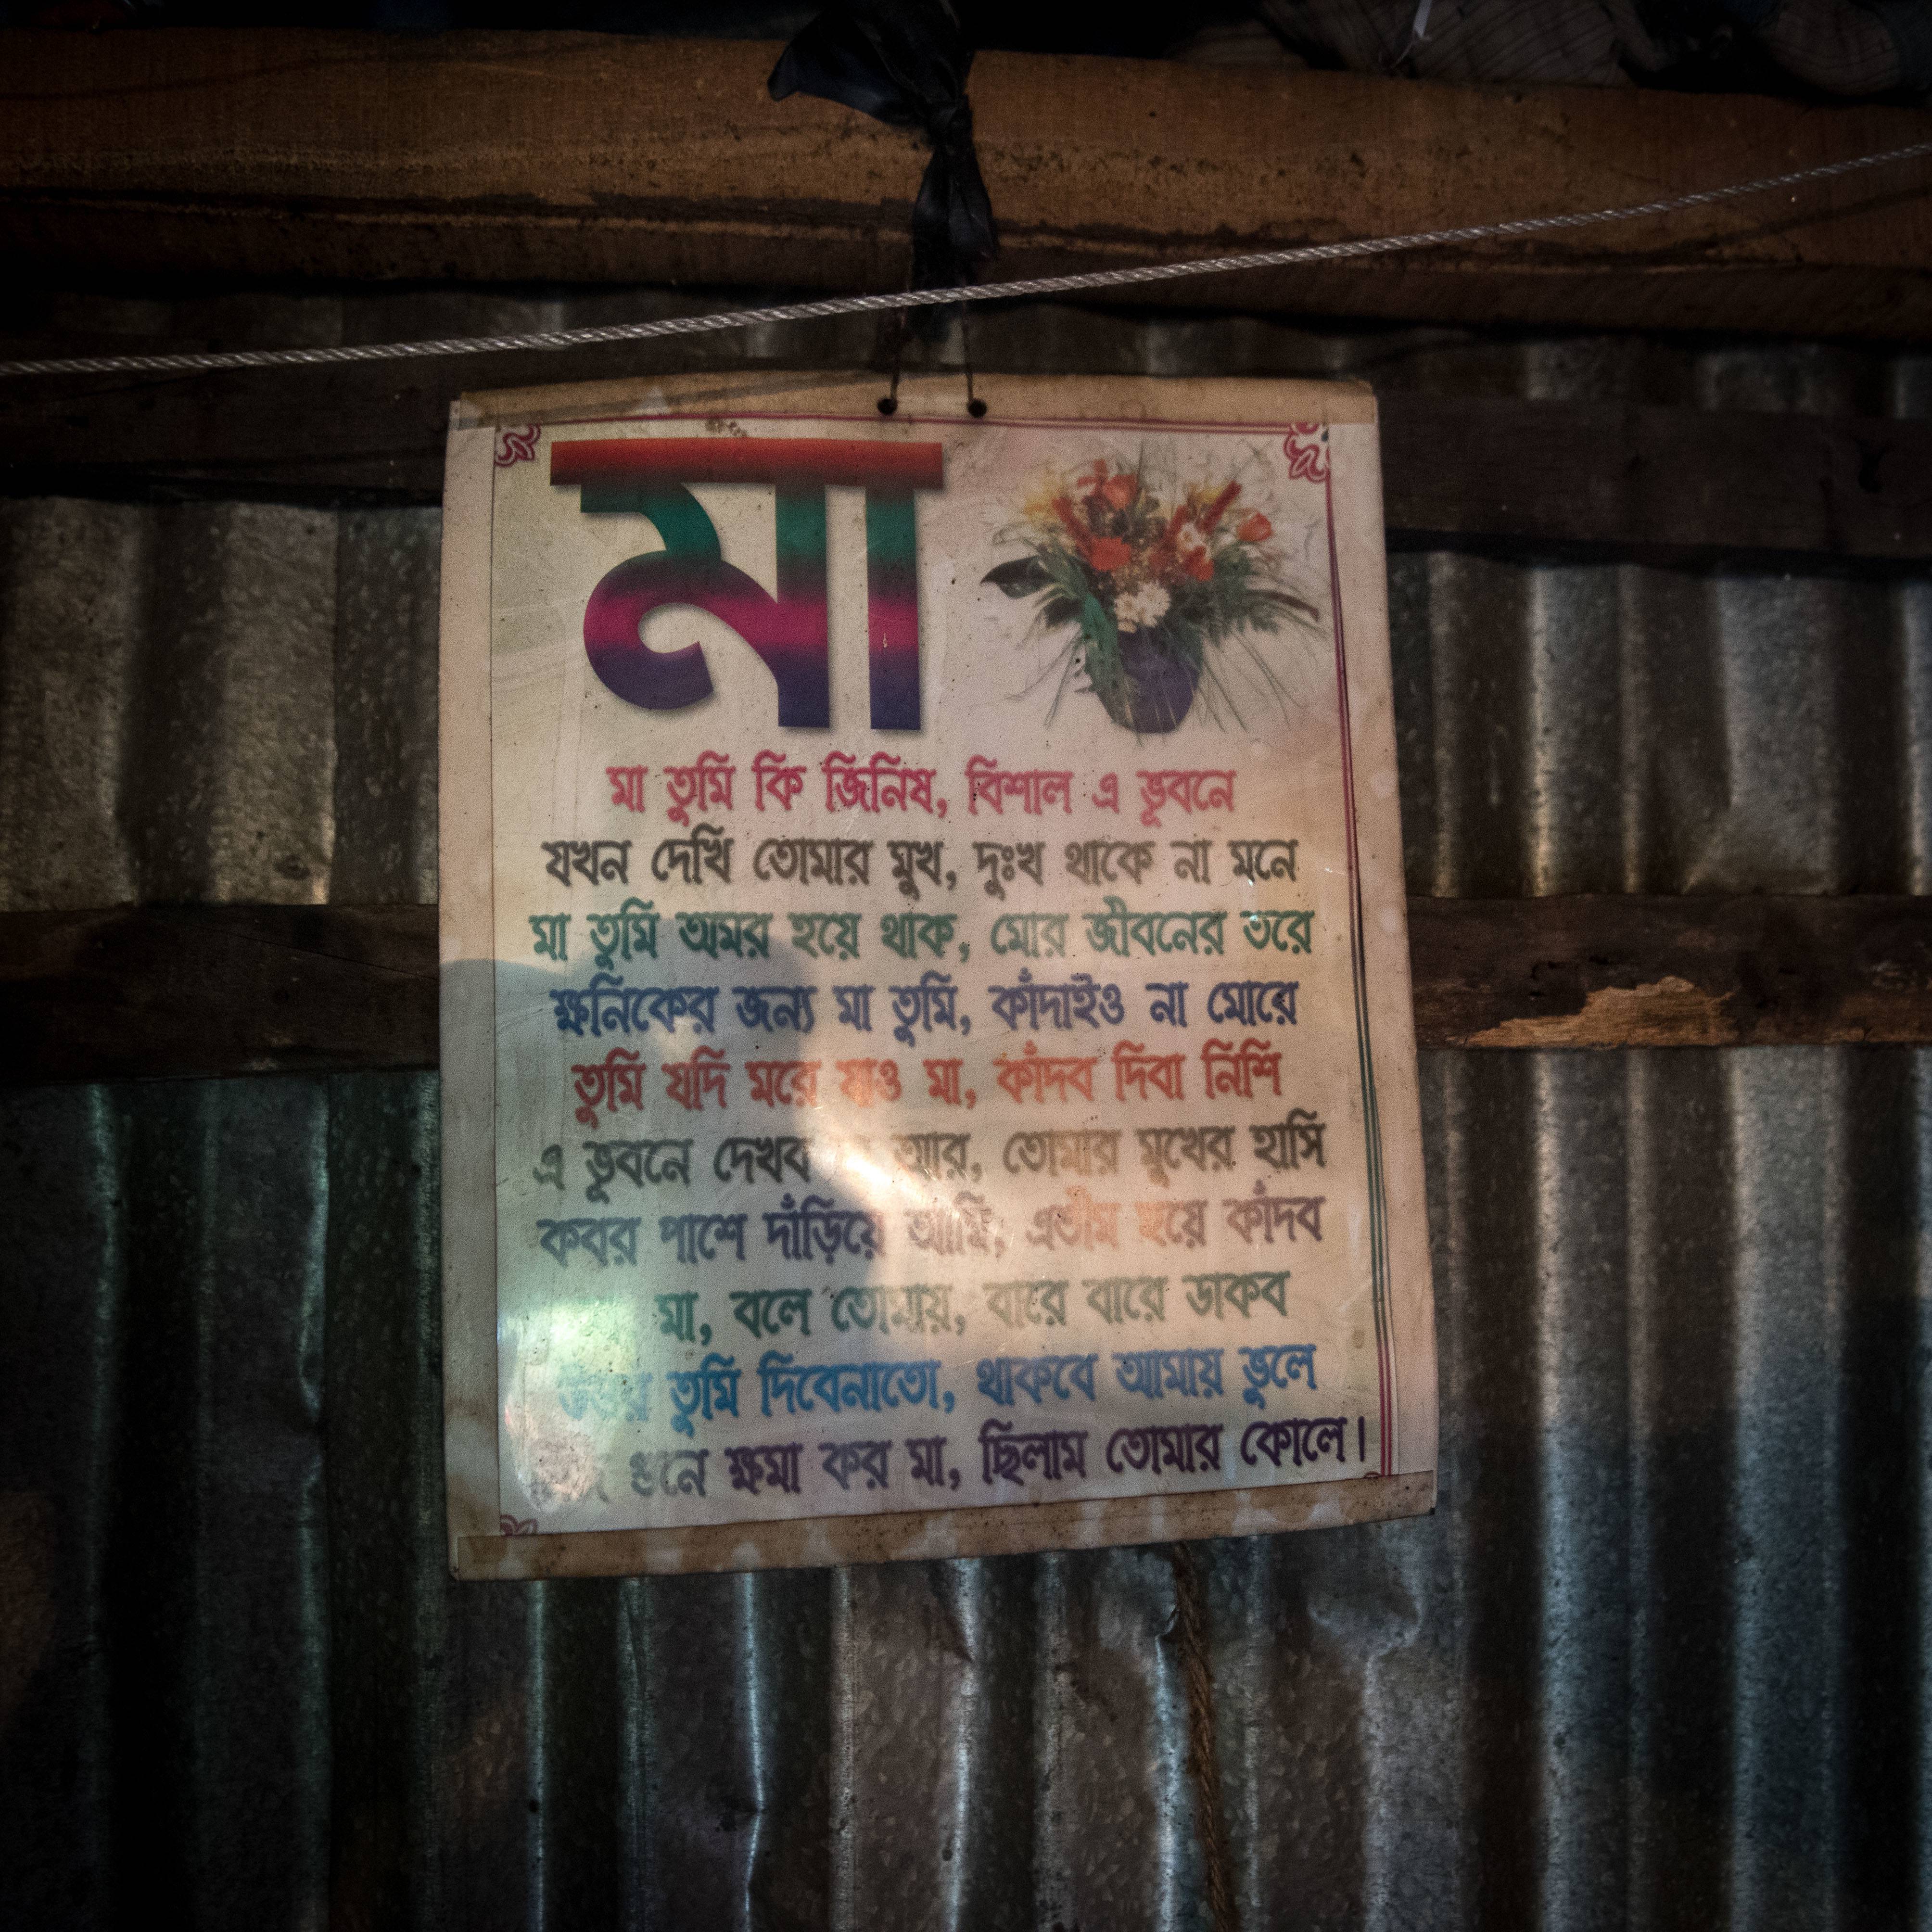 মা
মা তুমি কি জিনিষ, বিশাল এ ভূবনে
যখন দেখি তোমার মুখ, দুঃখ থাকে না মনে
মা তুমি অমর হয়ে থাক, মোর জীবনের তরে
ক্ষনিকের জন্য মা তুমি, কাঁদাইও না মোরে
তুমি যদি মরে যাও মা, কাঁদব দিবা নিশি
এ ভূবনে দেখব আর, তোমার মুখের হাসি
কবর পাশে দাঁড়িয়ে আমি, এতীম হয়ে কাঁদব
মা, বলে তোমায়, বারে বারে ডাকব
উত্তর তুমি দিবেনাতো, থাকবে আমায় ভুলে
গুনে ক্ষমা কর মা, ছিলাম তোমার কোলে।